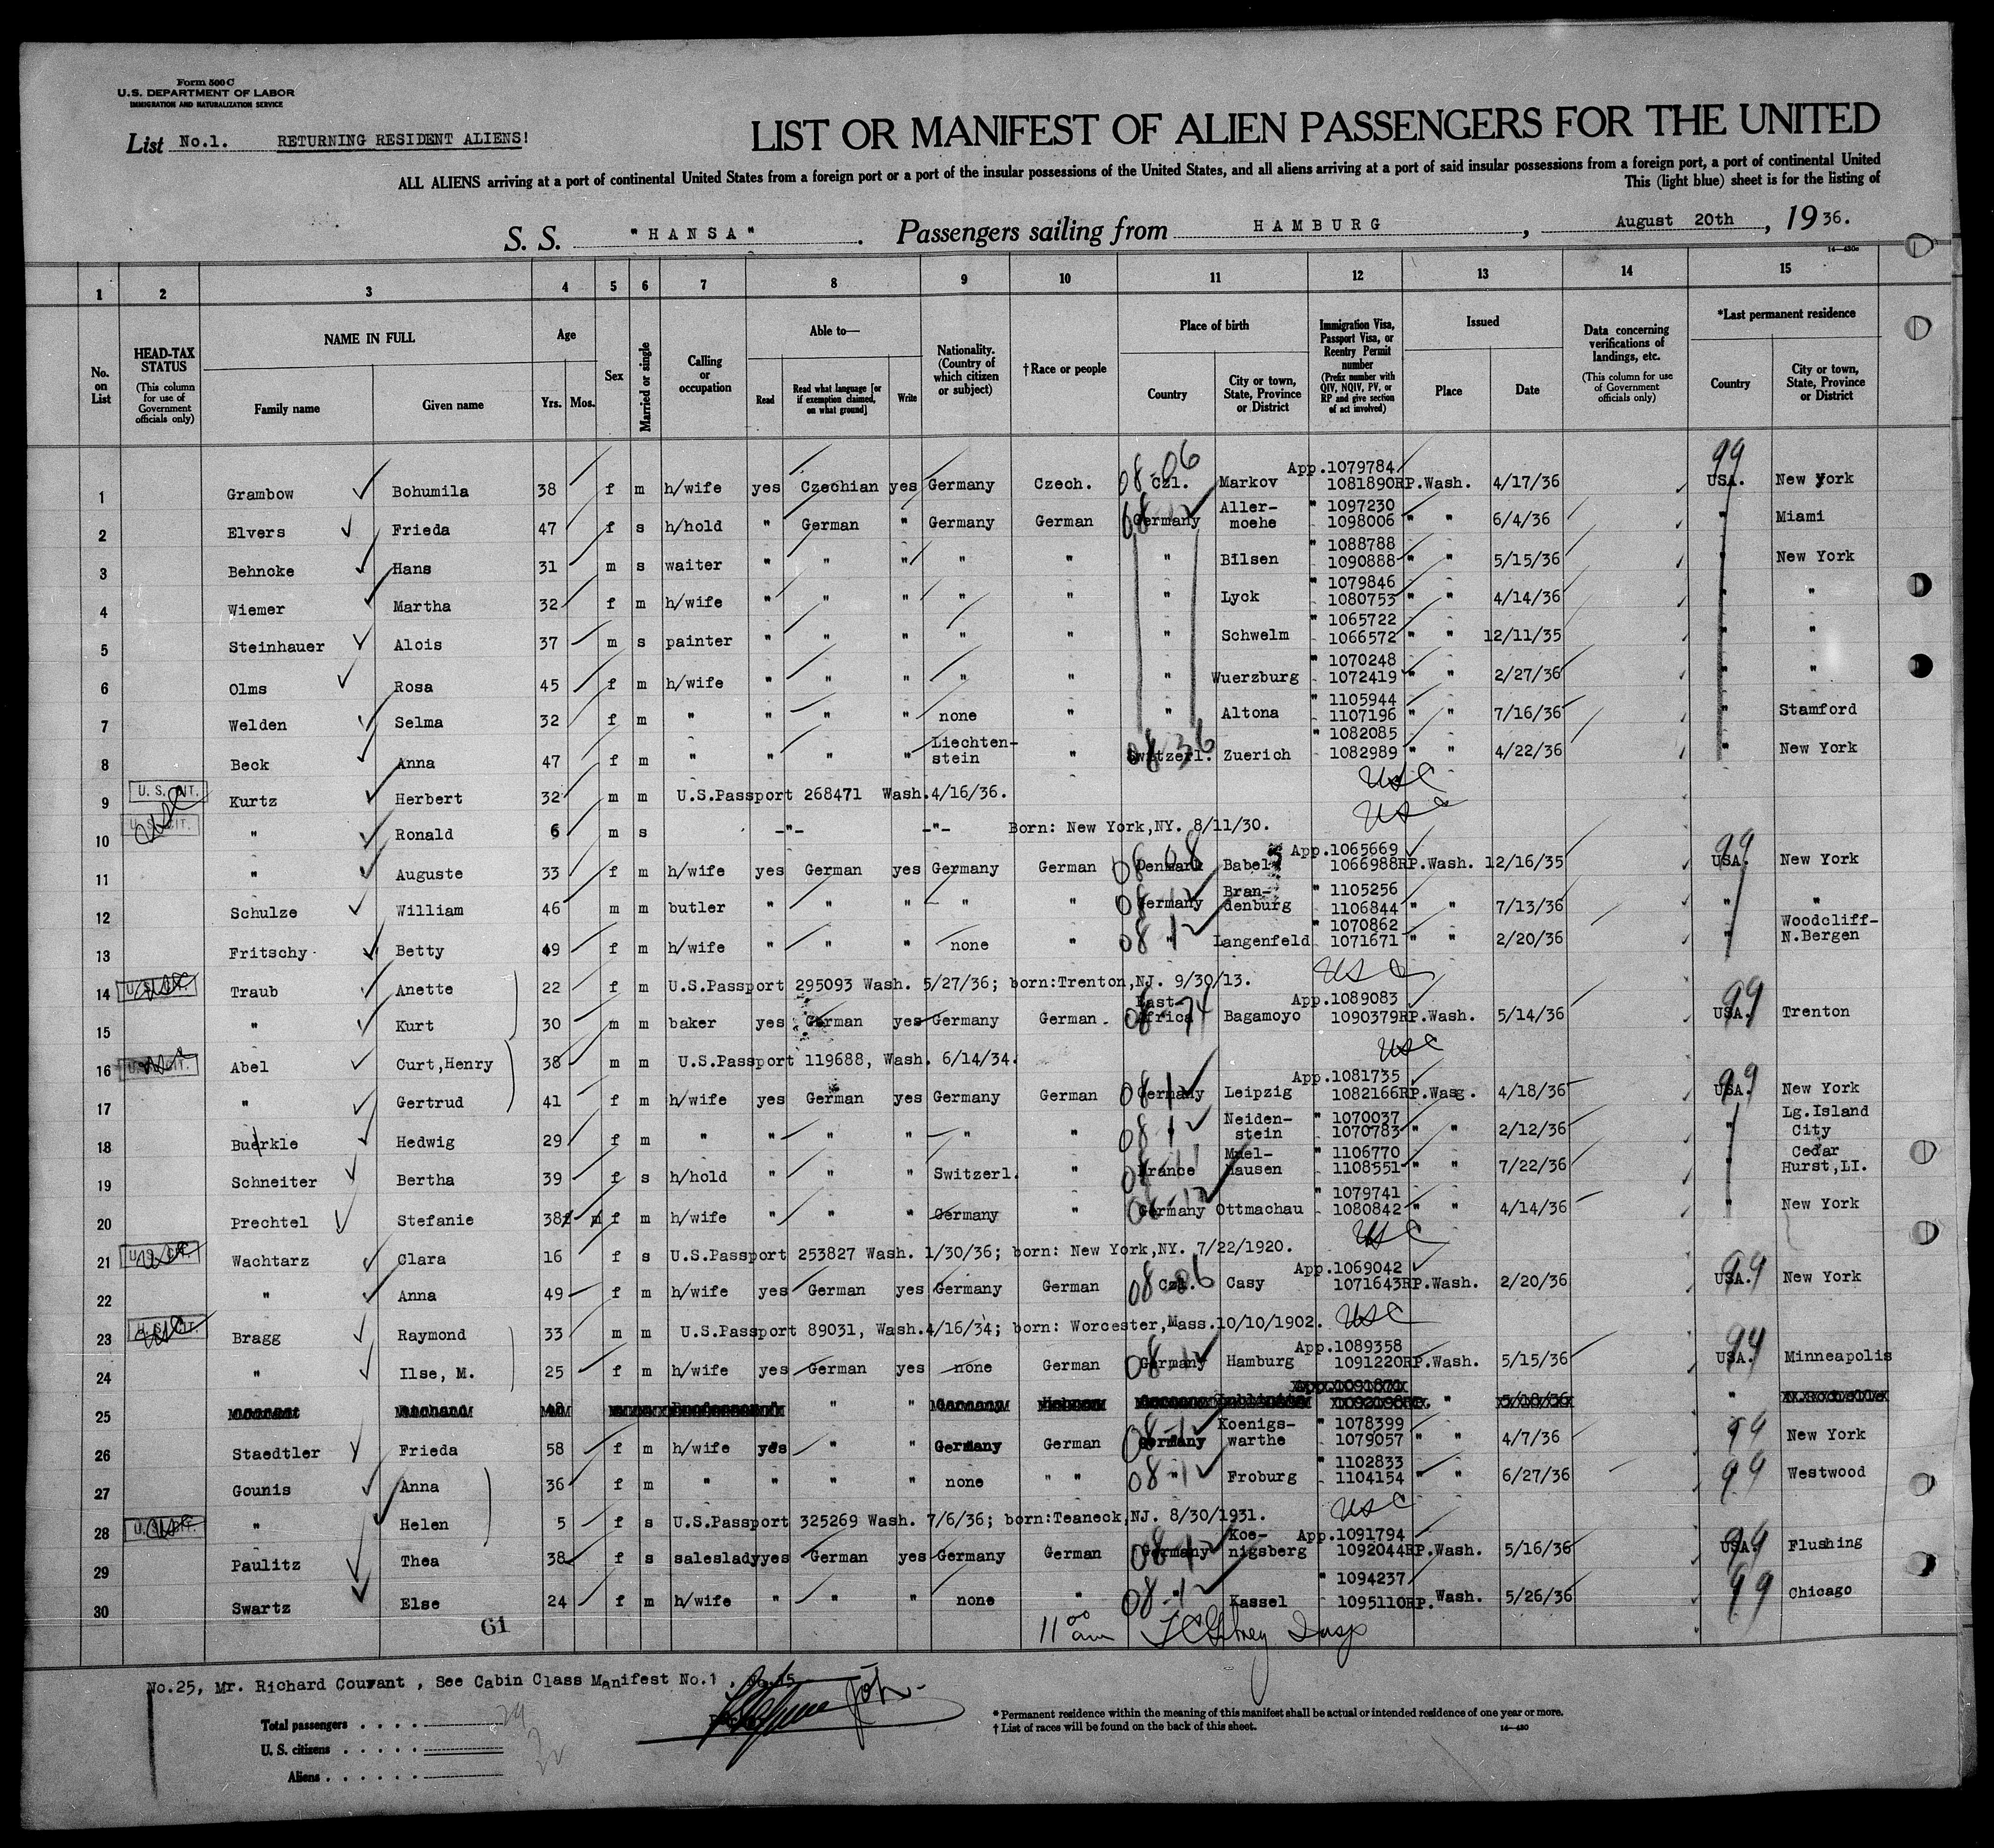 Form 500 C
U. S. DEPARTMENT OF LABOR
IMMIGRATION AND NATURALIZATION SERVICE
List No.1. RETURNING RESIDENT ALIENS!
LIST OR MANIFEST OF ALIEN PASSENGERS FOR THE UNITED
ALL ALIENS arriving at a port of continental United States from a foreign port or a port of the insular possessions of the United States, and all aliens arriving at a port of said insular possessions from a foreign port, a port of continental United
This (light blue) sheet is for the listing of
S. S. "HANSA". Passengers sailing from HAMBURG, August 20th, 1936.
14—430a
1 2 3 4 5 6 7 8 9 10 11 12 13 14 15
No. on List
HEAD-TAX STATUS (This column for use of Government officials only)
NAME IN FULL
Family name Given name
Age
Yrs. Mos.
Sex
Married or single
Calling or occupation
Able to—
Read Read what language [or if exemption claimed, on what ground] Write
Nationality. (Country of which citizen or subject)
†Race or people
Place of birth
Country City or town, State, Province or District
Immigration Visa, Passport Visa, or Reentry Permit number (Prefix number with QIV, NQIV, PV, or RP and give section of act involved)
Issued
Place Date
Data concerning verifications of landings, etc. (This column for use of Government officials only)
*Last permanent residence
Country City or town, State, Province or District
1 Grambow Bohumila 38 f m h/wife yes Czechian yes Germany Czech. 08-06 Czl. Markov App.1079784 1081890RP.Wash. 4/17/36 99 USA. New York
2 Elvers Frieda 47 f s h/hold " German " Germany German 08-12 Germany Aller-moehe " 1097230 1098006 " " 6/4/36 " Miami
3 Behncke Hans 31 m s waiter " " " " " " Bilsen " 1088788 1090888 " " 5/15/36 " New York
4 Wiemer Martha 32 f m h/wife " " " " " " Lyck " 1079846 1080753 " " 4/14/36 " "
5 Steinhauer Alois 37 m s painter " " " " " " Schwelm " 1065722 1066572 " " 12/11/35 " "
6 Olms Rosa 45 f m h/wife " " " " " " Wuerzburg " 1070248 1072419 " " 2/27/36 " "
7 Welden Selma 32 f m " " " " none " " Altona " 1105944 1107196 " " 7/16/36 " Stamford
8 Beck Anna 47 f m " " " " Liechten-stein " 08 36 Switzerl. Zuerich " 1082085 1082989 " " 4/22/36 " New York
9 U. S. CIT. USC Kurtz Herbert 32 m m U.S.Passport 268471 Wash.4/16/36. USC
10 U. S. CIT. " Ronald 6 m s -"- -"- Born: New York,NY. 8/11/30. USC
11 " Auguste 33 f m h/wife yes German yes Germany German 08 08 Denmark Babel App.1065669 1066988RP.Wash. 12/16/35 99 USA. New York
12 Schulze William 46 m m butler " " " " " 08-12 Germany Bran-denburg " 1105256 1106844 " " 7/13/36 " "
13 Fritschy Betty 49 f m h/wife " " " none " 08-12 " Langenfeld " 1070862 1071671 " " 2/20/36 " Woodcliff-N.Bergen
14 U. S. CIT. USC Traub Anette 22 f m U.S.Passport 295093 Wash. 5/27/36; born:Trenton,NJ. 9/30/13. USC
15 " Kurt 30 m m baker yes German yes Germany German 08-74 East-Africa Bagamoyo App.1089083 1090379RP.Wash. 5/14/36 99 USA. Trenton
16 U. S. CIT. USC Abel Curt,Henry 38 m m U.S.Passport 119688, Wash. 6/14/34. USC
17 " Gertrud 41 f m h/wife yes German yes Germany German 08-12 Germany Leipzig App.1081735 1082166RP.Wasg. 4/18/36 99 USA. New York
18 Buerkle Hedwig 29 f m " " " " " " 08-12 " Neiden-stein " 1070037 1070783 " " 2/12/36 " Lg.Island City
19 Schneiter Bertha 39 f s h/hold " " " Switzerl. " 08-11 France Muel-hausen " 1106770 1108551 " " 7/22/36 " Cedar Hurst,LI.
20 Prechtel Stefanie 38 f m h/wife " " " Germany " 08-12 Germany Ottmachau " 1079741 1080842 " " 4/14/36 " New York
21 U. S. CIT. USC Wachtarz Clara 16 f s U.S.Passport 253827 Wash. 1/30/36; born: New York,NY. 7/22/1920. USC
22 " Anna 49 f m h/wife yes German yes Germany German 08-06 Czl. Casy App.1069042 1071643RP.Wash. 2/20/36 99 USA. New York
23 U. S. CIT. USC Bragg Raymond 33 m m U.S.Passport 89031, Wash.4/16/34; born: Worcester,Mass.10/10/1902. USC
24 " Ilse, M. 25 f m h/wife yes German yes none German 08-12 Germany Hamburg App.1089358 1091220RP.Wash. 5/15/36 99 USA. Minneapolis
25 " " App.1091871 1092198RP. " 5/18/36 "
26 Staedtler Frieda 58 f m h/wife yes " " Germany German 08-12 Germany Koenigs-warthe " 1078399 1079057 " " 4/7/36 99 New York
27 Gounis Anna 36 f m " " " " none " " 08-12 " Froburg " 1102833 1104154 " " 6/27/36 99 Westwood
28 U. S. CIT. USC " Helen 5 f s U.S.Passport 325269 Wash. 7/6/36; born:Teaneck,NJ. 8/30/1931. USC
29 Paulitz Thea 38 f s saleslady yes German yes Germany German 08-12 Germany Koe-nigsberg App.1091794 1092044RP.Wash. 5/16/36 99 USA. Flushing
30 Swartz Else 24 f m h/wife " " " none " 08-12 " Kassel " 1094237 1095110RP. Wash. 5/26/36 99 Chicago
61
11 00 am Insp
No.25, Mr. Richard Courant , See Cabin Class Manifest No.1 , No.15
Total passengers . . . . 29
U. S. citizens . . . . .
Aliens . . . . . .
* Permanent residence within the meaning of this manifest shall be actual or intended residence of one year or more.
† List of races will be found on the back of this sheet.
14—430